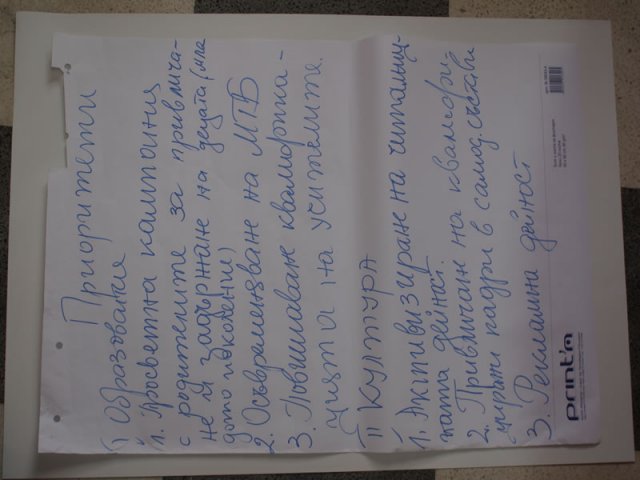 Приоритети
I Образование
1. Просветна кампания
с родителите за привлича-
не и задържане на децата (мла
дото поколение)
2. Осъвременяване на МТБ
3. Повишаване квалифика-
цията на учителите.
II КУЛТУРА
1. Активизиране на читалищ-
ната дейност.
2. Привличане на квалифи-
цирани кадри в самод. състави
3. Рекламна дейност
print'n